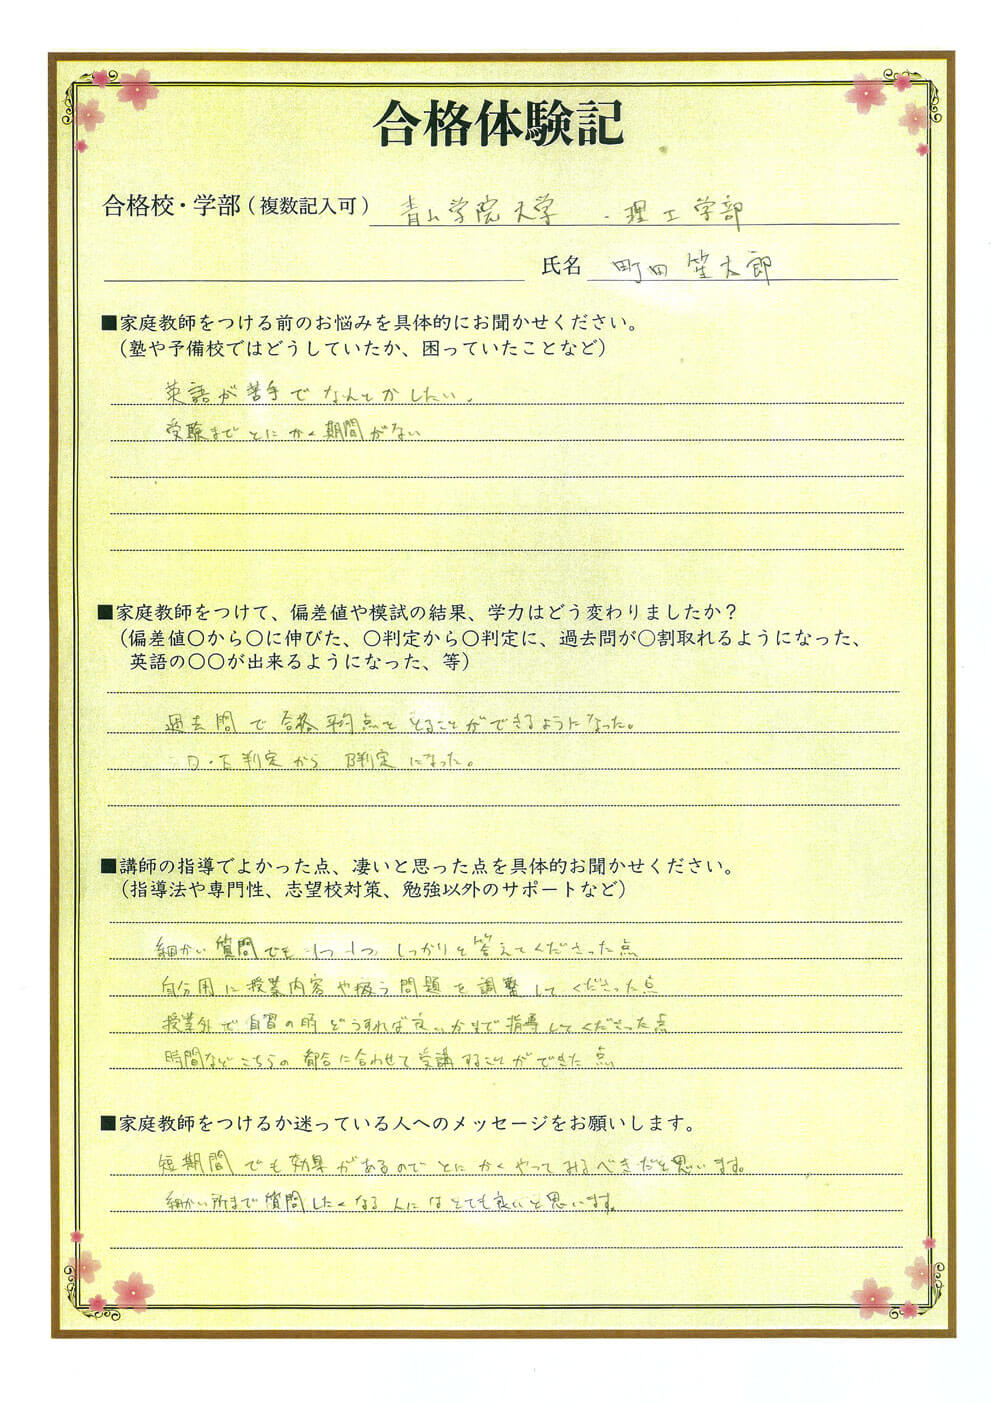 合格体験記
合格校・学部（複数記入可） 青山学院大学 ・理工学部
氏名 町田 笙太郎
■家庭教師をつける前のお悩みを具体的にお聞かせください。
（塾や予備校ではどうしていたか、困っていたことなど）
英語が苦手でなんとかしたい。
受験までとにかく期間がない
■家庭教師をつけて、偏差値や模試の結果、学力はどう変わりましたか？
（偏差値〇から〇に伸びた、〇判定から〇判定に、過去問が〇割取れるようになった、
英語の〇〇が出来るようになった、等）
過去問で合格平均点をとることができるようになった。
D・E判定から B判定になった。
■講師の指導でよかった点、凄いと思った点を具体的お聞かせください。
（指導法や専門性、志望校対策、勉強以外のサポートなど）
細かい質問でも一つ一つしっかりと答えてくださった点
自分用に授業内容や扱う問題を調整してくださった点
授業外で自習の時どうすれば良いかまで指導してくださった点
時間などこちらの都合に合わせて受講することができた点
■家庭教師をつけるか迷っている人へのメッセージをお願いします。
短期間でも効果があるのでとにかくやってみるべきだと思います。
細かい所まで質問したくなる人にはとても良いと思います。